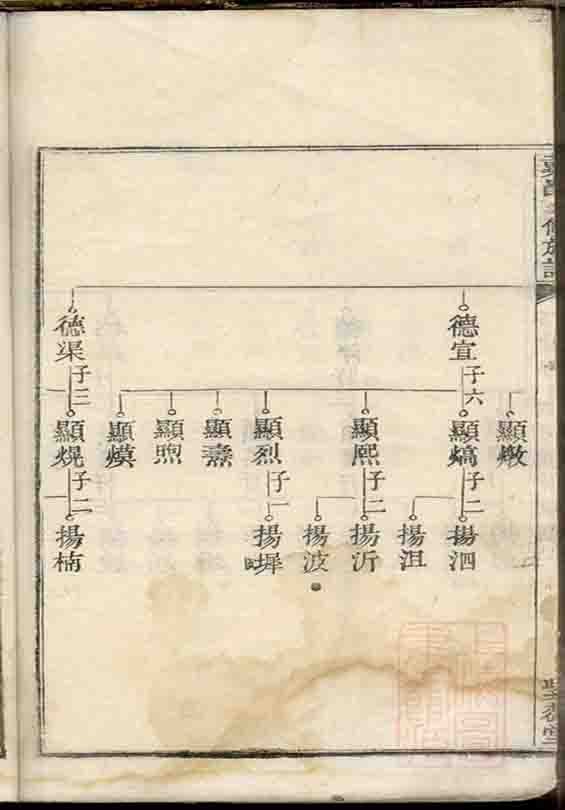 修族譜
德宣
子六
德渠
子三
顯燉
顯熇
子二
顯熙
子二
顯烈
子一
顯燾
顯煦
顯熯
顯熀
子二
揚泗
揚沮
揚沂
揚波
揚墀
揚楠